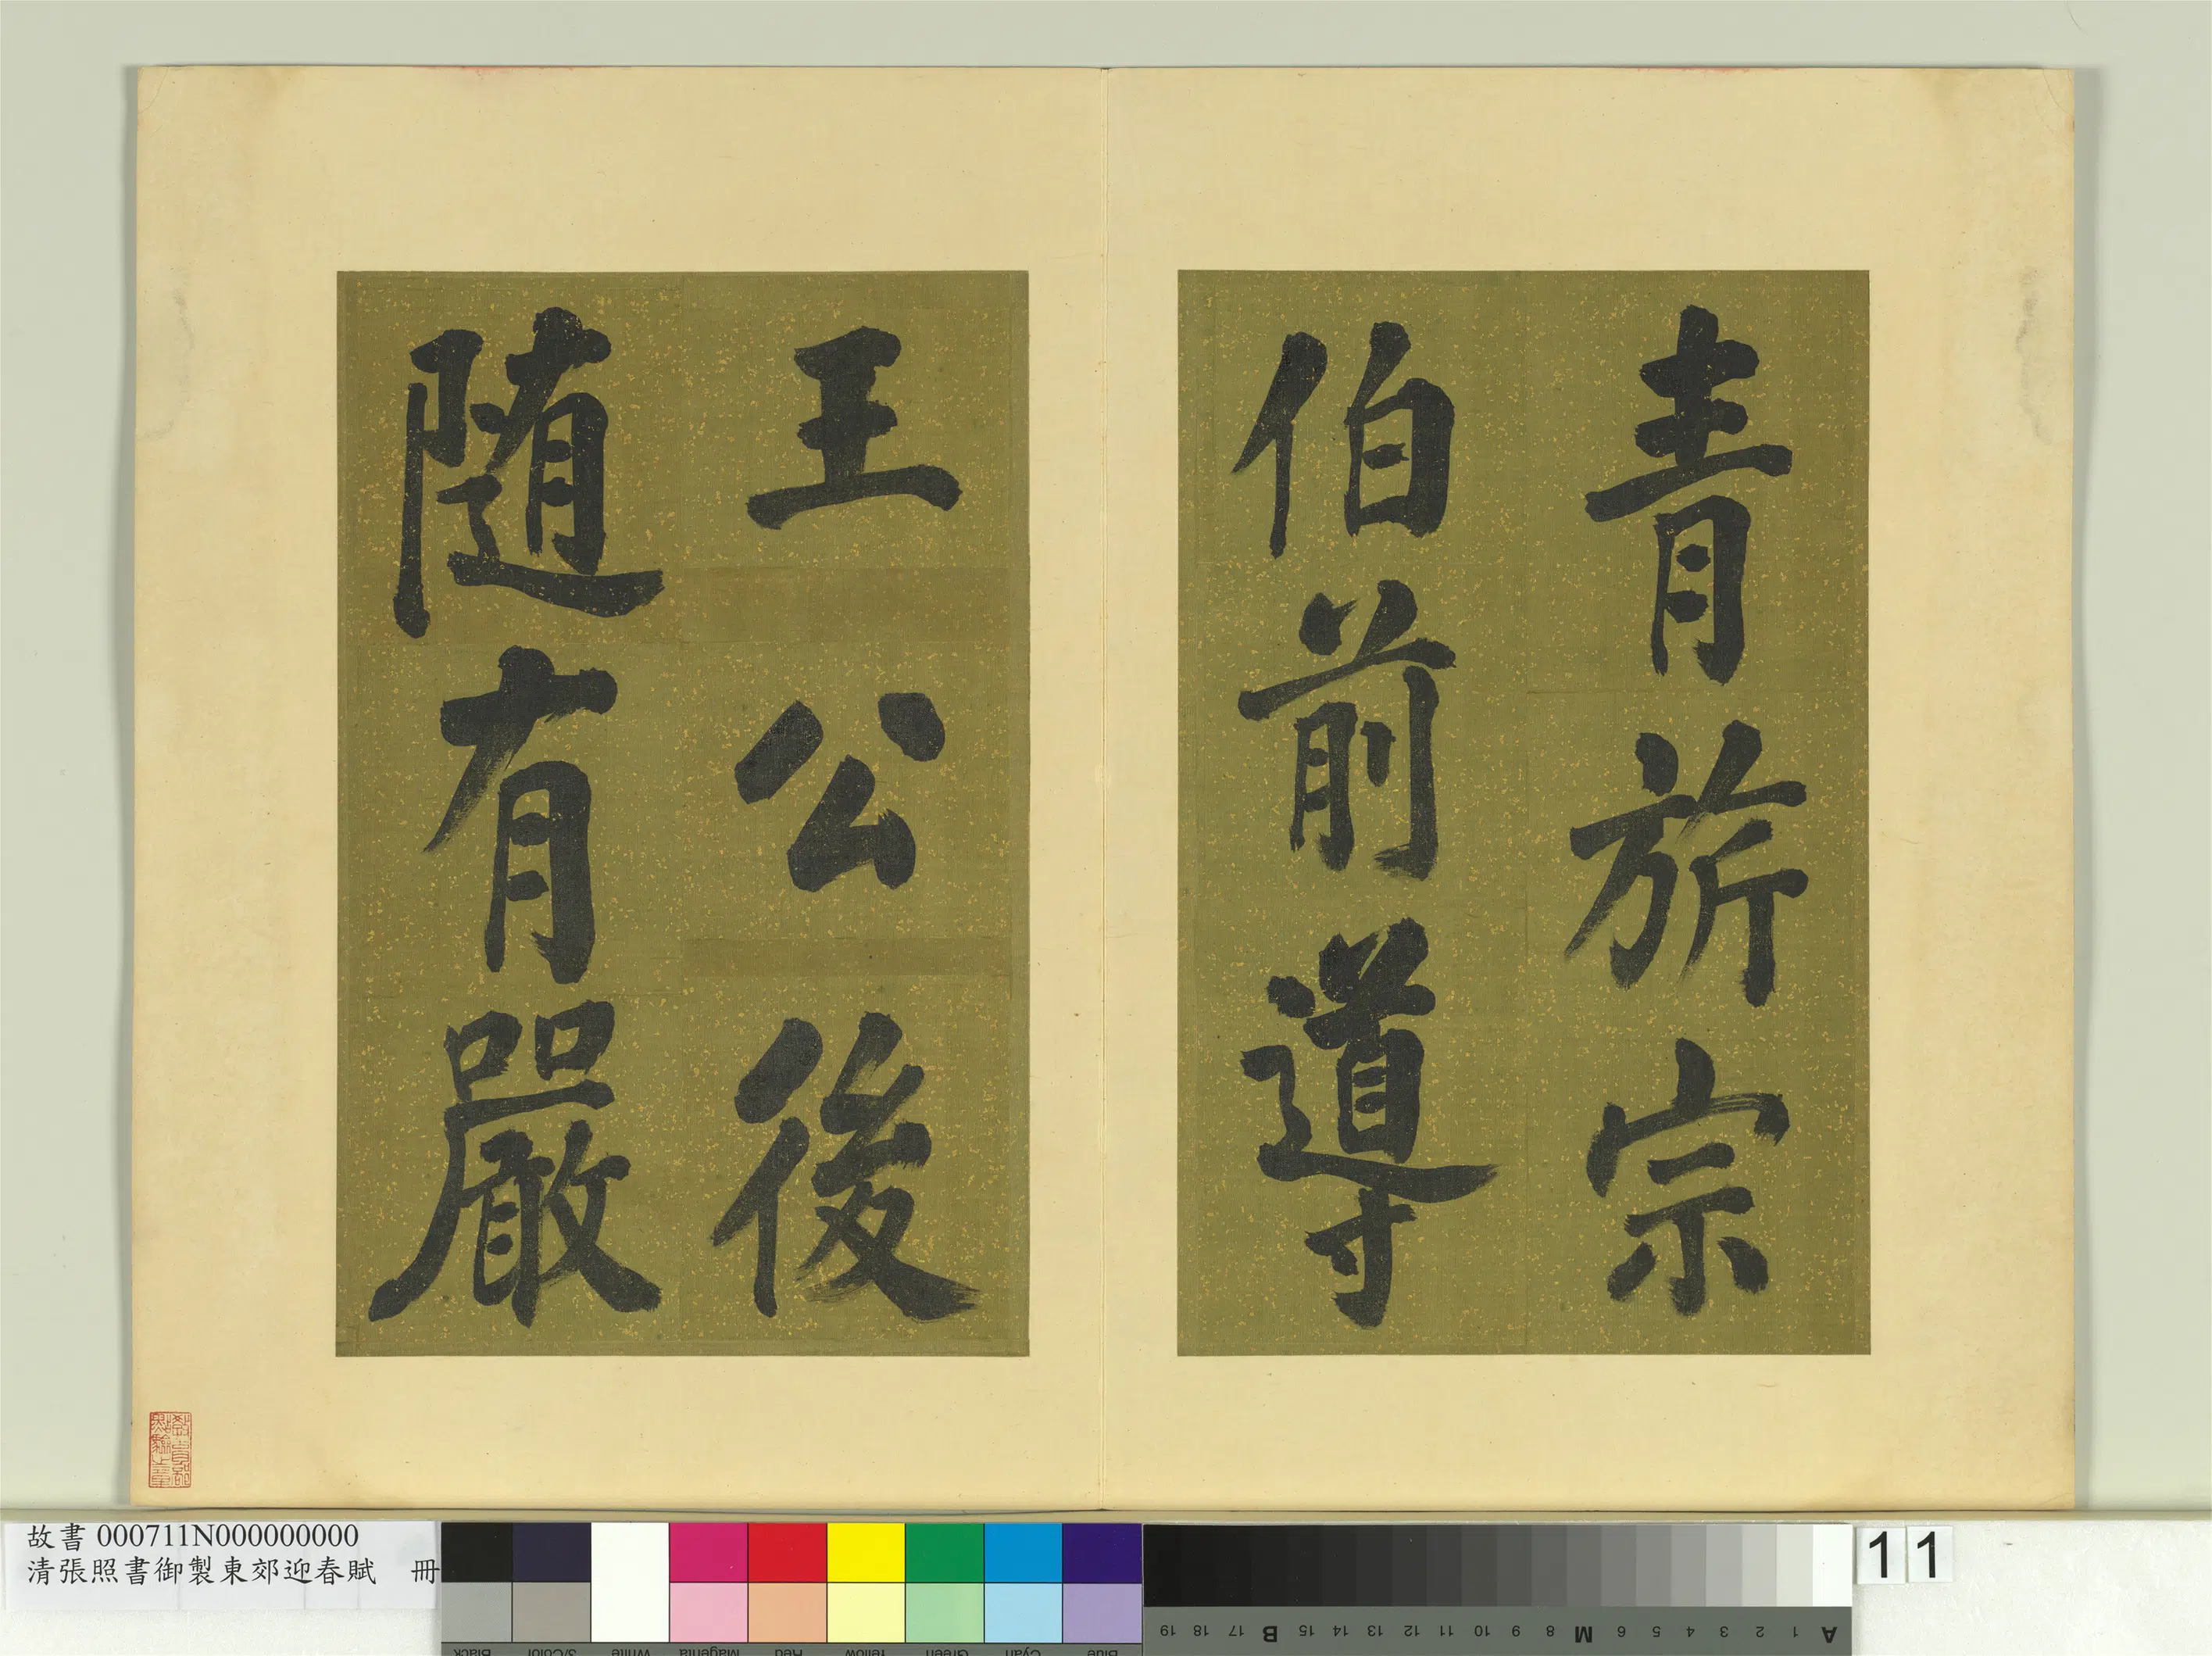 青旂宗
伯前導
王公後
随有嚴
故書 000711N000000000
清張照書御製東郊迎春賦 冊
11
Black
3/Color
White
Magenta
Red
Yellow
Green
Cyan
Blue
19 18 17 B 15 14 13 12 11 10 9 8 M 6 5 4 3 2 1 A